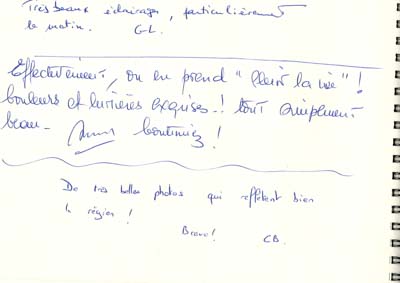 Très beaux éclairages, particulièrement
le matin. G-L.
Effectivement, on en prend "plein la vie"!
Couleurs et lumières exquises..! tout simplement
beau- continuez!
De très belles photos qui reflètent bien
la région!
Bravo! CB.